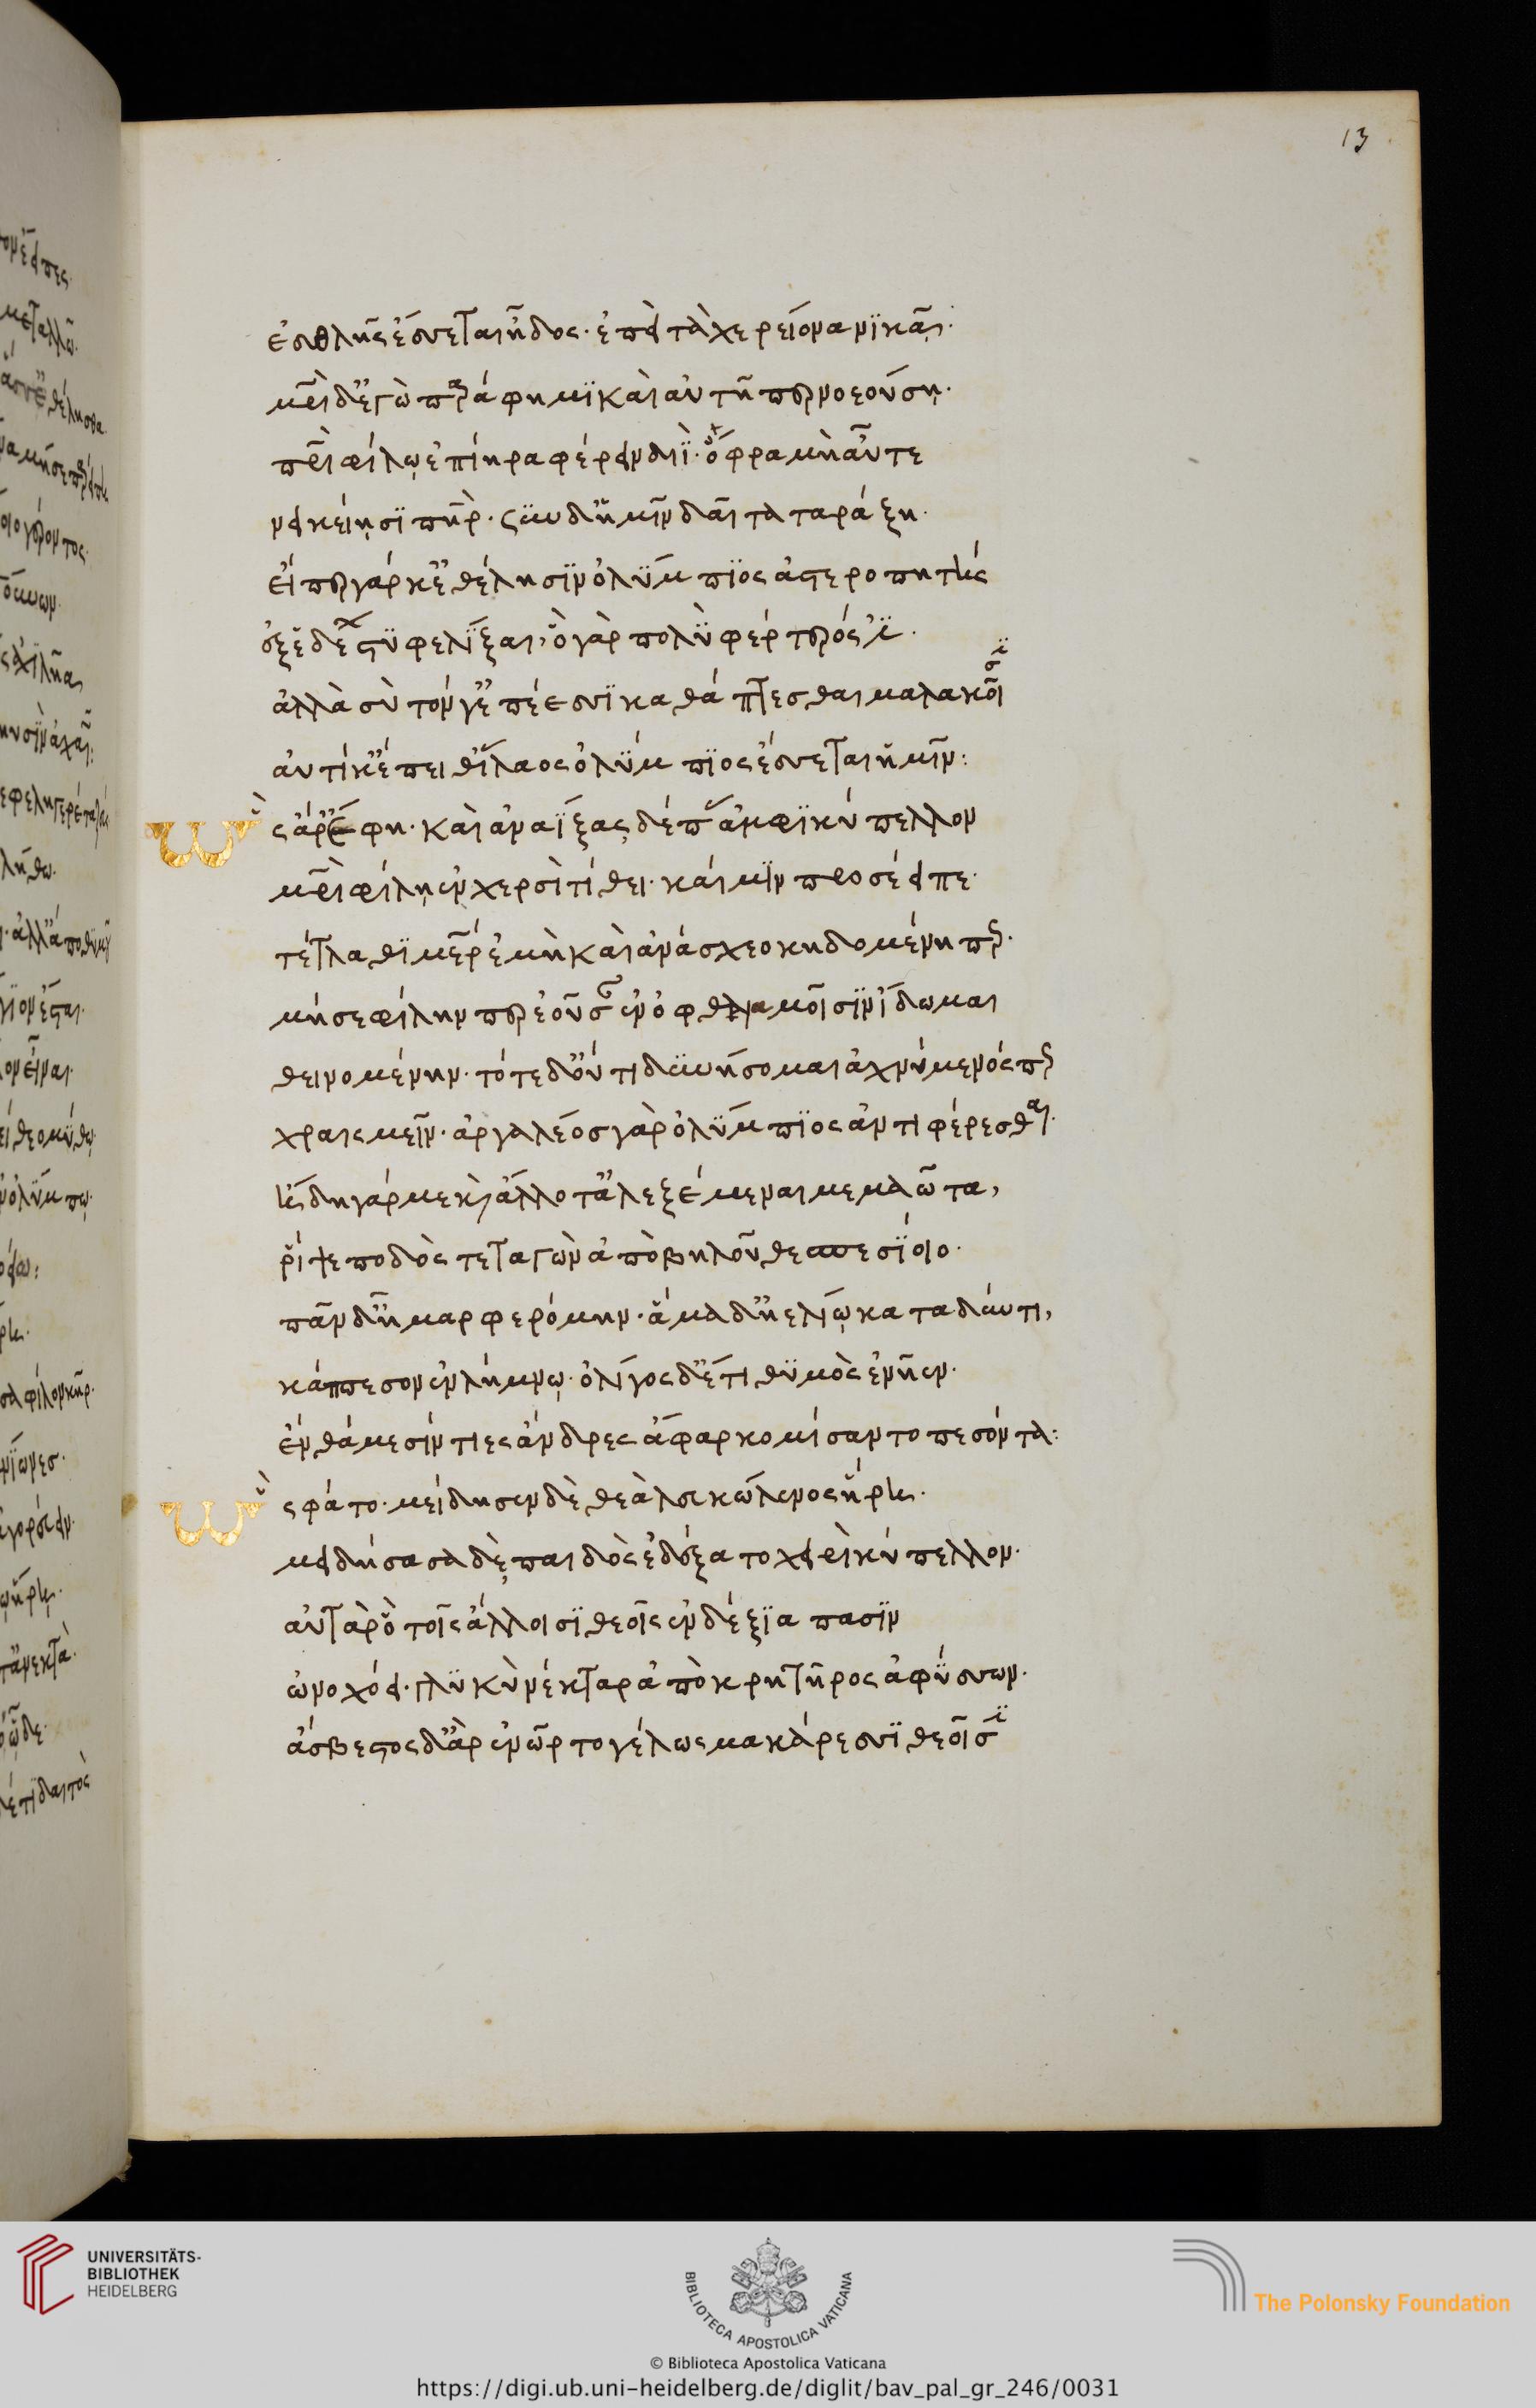 13
ἐσθλῆς ἔσσεται ἦδος· ἐπεὶ τὰ χερείονα νικᾷ·
μρὶ δ' ἐγὼ παράφημϊ καὶ αὐτῇ περ νοεούσῃ·
πρὶ φίλῳ ἐπίηρα φέρειν διΐ· ὄφρα μὴ αὖτε
νεικείῃσϊ πηρ· σὺν δ' ἡμῖν δαῖτα ταράξη·
εἴ περ γάρ κ' ἐθέλησϊν ὀλύμπϊος ἀστεροπητὴς
ἐξ ἑδέων στυφελΐξαι, ὁ γὰρ πολὺ φέρτερός ἐϊ·
ἀλλὰ σὺ τόν γ' ἐπέεσσϊ καθάπτεσθαι μαλακοῖσϊ
αὐτίκ' ἔπειθ' ἵλαος ὀλύμπϊος ἔσσεται ἡμῖν:
ὣς ἄρ' ἔφη· καὶ ἀναΐξας δέπας ἀμφϊκύπελλον
μρὶ φίλῃ ἐν χερσὶ τίθει· καί μϊν προσέειπε·
τέτλαθϊ μῆερ ἐμὴ καὶ ἀνάσχεο κηδομένη περ·
μή σε φίλην περ ἐοῦσαν ἐν ὀφθαλμοῖσϊν ἴδωμαι
θεινομένην· τότε δ' οὔ τι δυνήσομαι ἀχνύμενός περ
χραισμεῖν· ἀργαλέος γὰρ ὀλύμπϊος ἀντιφέρεσθαι·
ἤδη γάρ με καὶ ἄλλοτ' ἀλεξέμεναι μεμαῶτα,
ῥίψε ποδὸς τεταγὼν ἀπὸ βηλοῦ θεσπεσΐοιο·
πᾶν δ' ἦμαρ φερόμην· ἅμα δ' ἠελΐῳ καταδύντι,
κάππεσον ἐν λήμνῳ· ὀλίγος δ' ἔτι θϋμὸς ἐνῆεν·
ἔνθά με σίντιες ἄνδρες ἄφαρ κομίσαντο πεσόντα:
ὣς φάτο· μείδησεν δὲ θεὰ λευκώλενος ἥρη·
μειδήσασα δὲ παιδὸς ἐδέξατο χειρὶ κύπελλον·
αὐτὰρ ὁ τοῖς ἄλλοισϊ θεοῖς ἐνδέξϊα πασϊν
ὠνοχόει· γλϋκὺ νέκταρ ἀπὸ κρητῆρος ἀφύσσων·
ἄσβεστος δ' ἄρ ἐνῶρτο γέλως μακάρεσσϊ θεοῖσϊ
UNIVERSITÄTS-
BIBLIOTHEK
HEIDELBERG
BIBLIOTECA APOSTOLICA VATICANA
The Polonsky Foundation
© Biblioteca Apostolica Vaticana
https://digi.ub.uni-heidelberg.de/diglit/bav_pal_gr_246/0031